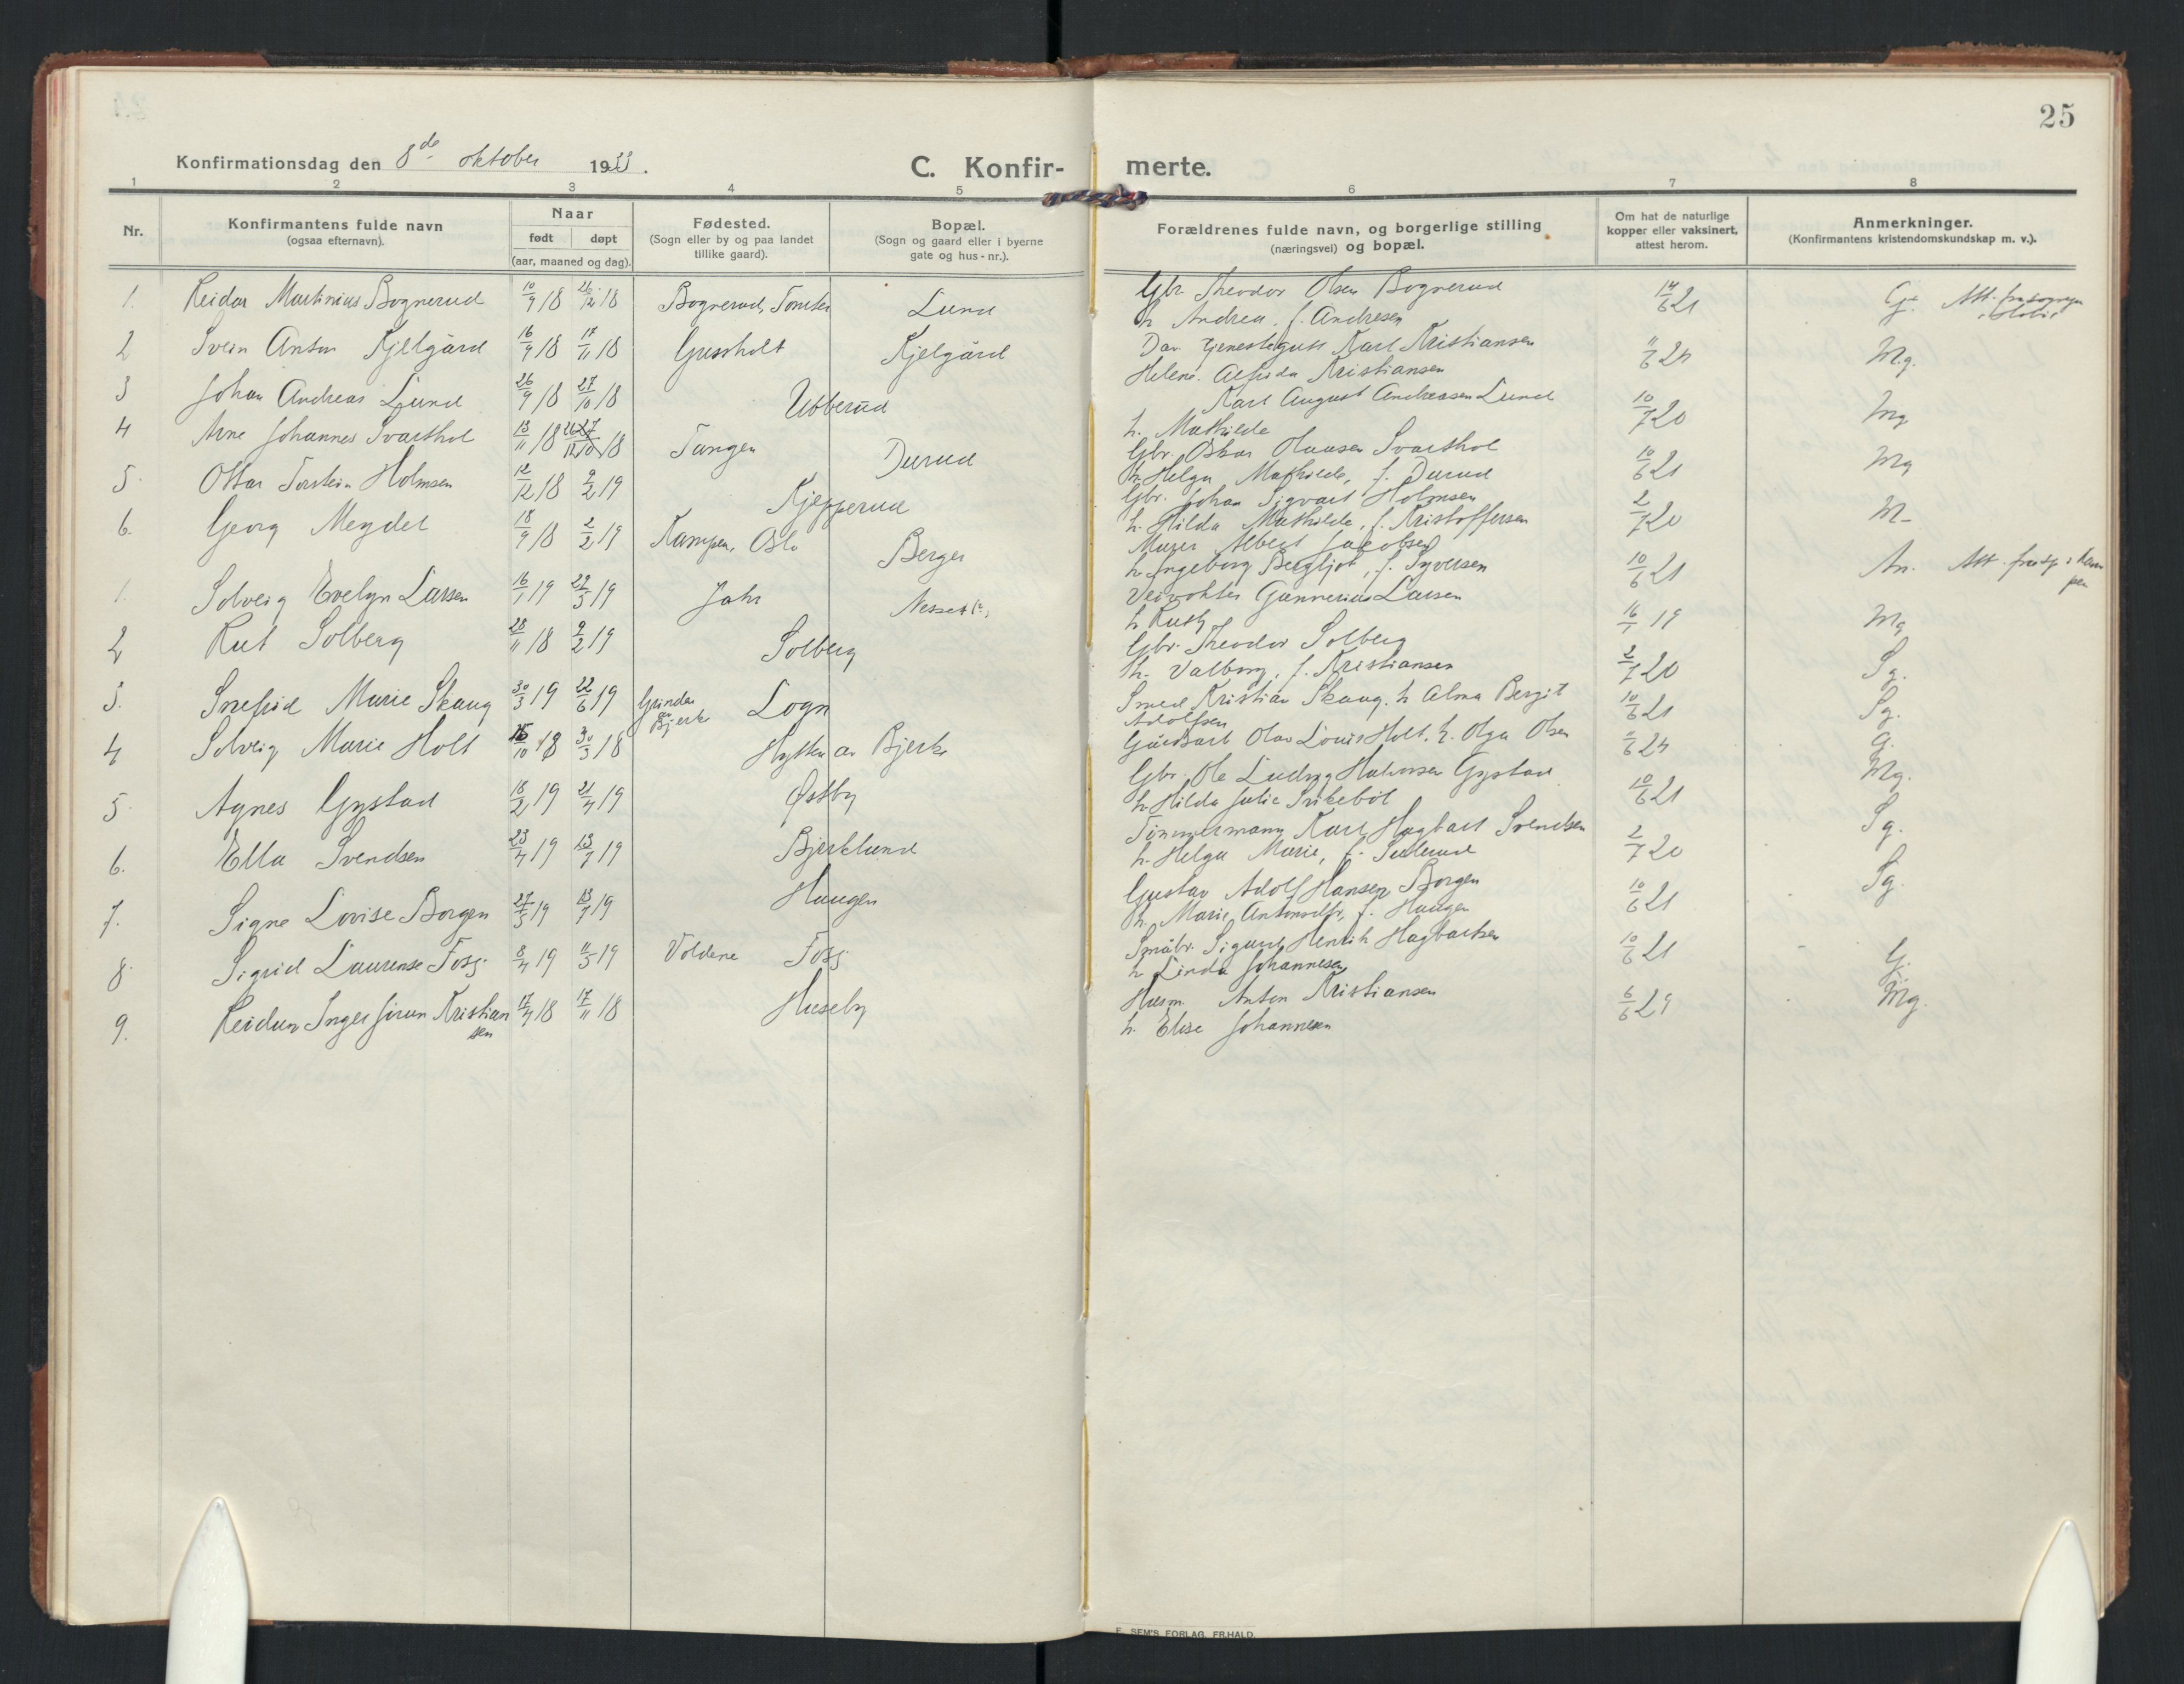 25
Konfirmationsdag den 8de oktober 1933.
C. Konfir- merte.
1 2 3 4 5 6 7 8
Nr.
Konfirmantens fulde navn
(ogsaa efternavn).
Naar
født døpt
(aar, maaned og dag).
Fødested.
(Sogn eller by og paa landet
tillike gaard).
Bopæl.
(Sogn og gaard eller i byerne
gate og hus-nr.).
Forældrenes fulde navn, og borgerlige stilling
(næringsvei) og bopæl.
Om hat de naturlige
kopper eller vaksinert,
attest herom.
Anmerkninger.
(Konfirmantens kristendomskundskap m. v.).
1. Reidar Martinius Bognerud 10/9 18 26/12 18 Bognerud, Tomter Lund
Gbr Theodor Olsen Bognerud
h. Andrea, f. Andresen 14/6 21 G. Att. fra sognepr
2 Svein Anton Kjelgård 16/9 18 17/11 18 Gussholt Kjelgård
Dav. tjenestegutt Karl Kristiansen
Helene Alfrida Kristiansen 11/6 24 Mg.
3 Johan Andreas Lund 26/9 18 27/10 18 Ubberud
Karl August Andreassen Lund
h. Mathilde 10/7 20 Mg
4 Arne Johannes Svarthol 13/11 18 26/12 18 Tangen Durud
Gbr. Oskar Svarthol
h. Helga Mathilde, f. Durud 10/6 21 Mg
5. Ottar Torstein Holmsen 12/12 18 9/2 19 Kjepperud
Gbr. Johan Sigvart Holmsen
h. Hilda Mathilde, f. Kristoffersen 2/7 20 M-
6. Georg Megdel 18/9 18 2/2 19 Kampen, Oslo Berger
Murer Albert Jacobsen
h. Ingeborg Bergljot, f. Syversen 10/6 21 Att. fra i Kam
pen
1. Solveig Evelyn Larsen 16/1 19 23/3 19 Jahr
Veivokter Gunnerius Larsen
h Ruth 16/1 19 Mg
2 Rut Solberg 28/11 18 9/2 19 Solberg
Gbr. Theodor Solberg
h. Valborg, f. Kristiansen 2/7 20 Sg.
3. Snefrid Marie Skaug 30/3 19 22/6 19 Grinder
Bjerke Logn
Smed Kristian Skaug. h Alma Bergit
Adolfsen 10/6 21 Sg.
4 Solveig Marie Holt 10 18 30/3 18 Hytten av Bjerke
Gårdbart Olav Louis Holt. h. Olga Olsen 11/6 24 G.
5. Agnes Gystad 18/2 19 21/4 19 Østby
Gbr. Ole Ludvig Halvorsen Gystad
h Hilda Julie Svikebøl 10/6 21 Mg.
6. Ella Svendsen 23/4 19 13/7 19 Bjerklund
Tømmermann Karl Hagbart Svendsen
h. Helga Marie, f. 2/7 20 Sg.
7. Signe Lovise Borgen 27/5 19 13/7 19 Haugen
Gustav Adolf Hansen Borgen
h. Marie f. Haugen 10/6 21 Sg
8. Sigrid Laurense Foss 8/4 19 11/5 19 Voldene Foss
Småbr. Sigurd Henrik Hagbartsen
h Linda Johannesen 10/6 21 G.
9. Reidun Inger Jorun Kristian
sen 17/9 18 17/11 18 Huseby
Husm. Anton Kristiansen
h. Elise Johannesen 6/6 29 Mg.
E. SEM'S FORLAG, FR.HALD.